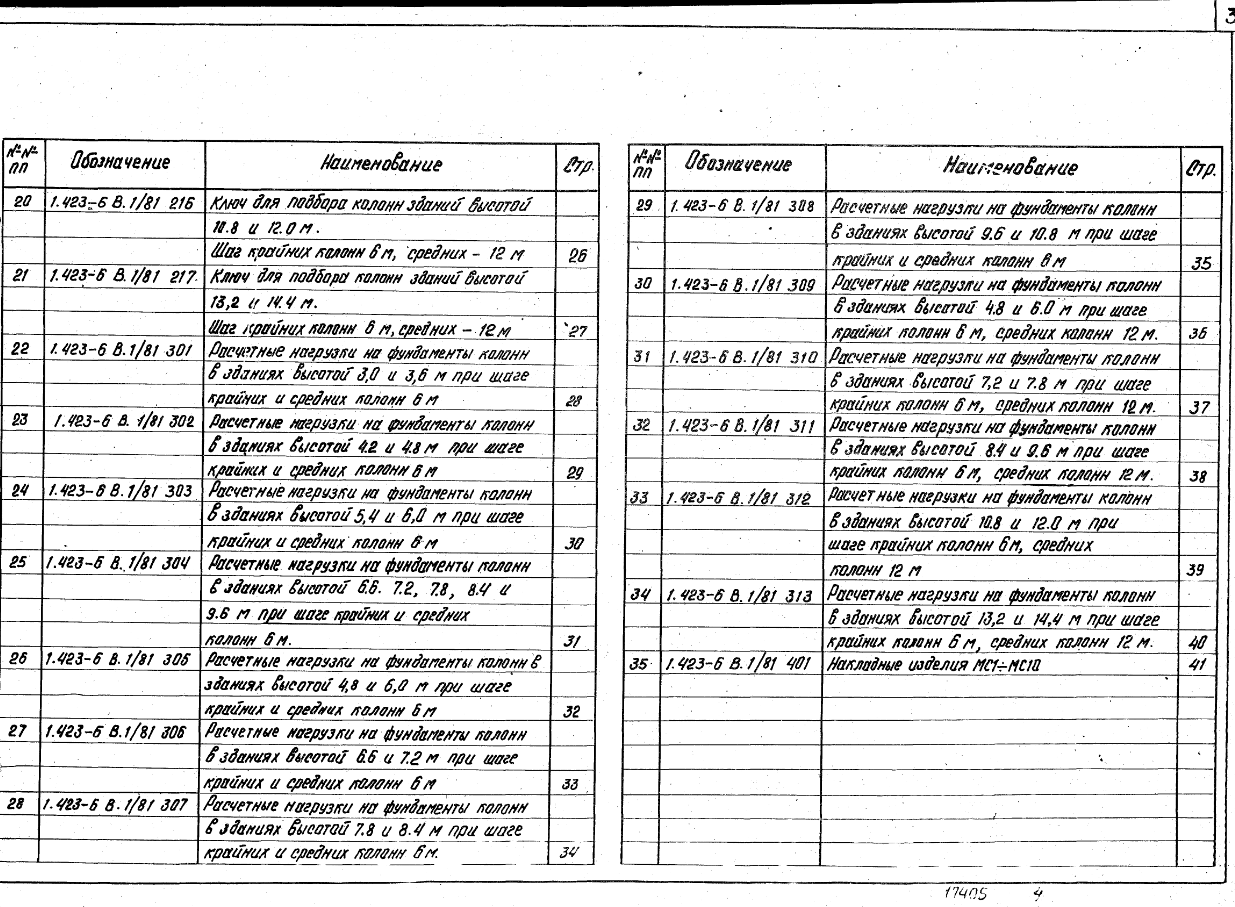 3
№№ пп Обозначение Наименование Стр.
20 1.423-6 В.1/81 216 Ключ для подбора колонн зданий высотой
10.8 и 12.0 м.
Шаг крайних колонн 6 м, средних - 12 м 26
21 1.423-6 В.1/81 217. Ключ для подбора колонн зданий высотой
13,2 и 14.4 м.
Шаг крайних колонн 6 м, средних - 12 м 27
22 1.423-6 В.1/81 301 Расчетные нагрузки на фундаменты колонн
в зданиях высотой 3,0 и 3,6 м при шаге
крайних и средних колонн 6 м 28
23 1.423-6 В. 1/81 302 Расчетные нагрузки на фундаменты колонн
в зданиях высотой 4.2 и 4.8 м при шаге
крайних и средних колонн 6 м 29
24 1.423-6 В.1/81 303 Расчетные нагрузки на фундаменты колонн
в зданиях высотой 5,4 и 6,0 м при шаге
крайних и средних колонн 6 м 30
25 1.423-6 В.1/81 304 Расчетные нагрузки на фундаменты колонн
в зданиях высотой 6.6. 7.2, 7.8, 8.4 и
9.6 м при шаге крайних и средних
колонн 6 м. 31
26 1.423-6 В.1/81 305 Расчетные нагрузки на фундаменты колонн в
зданиях высотой 4,8 и 6,0 м при шаге
крайних и средних колонн 6 м 32
27 1.423-6 В.1/81 306 Расчетные нагрузки на фундаменты колонн
в зданиях высотой 6.6 и 7.2 м при шаге
крайних и средних колонн 6 м 33
28 1.423-6 В.1/81 307 Расчетные нагрузки на фундаменты колонн
в зданиях высотой 7.8 и 8.4 м при шаге
крайних и средних колонн 6 м. 34
№№ пп Обозначение Наименование Стр.
29 1.423-6 В.1/81 308 Расчетные нагрузки на фундаменты колонн
в зданиях высотой 9.6 и 10.8 м при шаге
крайних и средних колонн 6 м 35
30 1.423-6 В.1/81 309 Расчетные нагрузки на фундаменты колонн
в зданиях высотой 4.8 и 6.0 м при шаге
крайних колонн 6 м, средних колонн 12 м. 36
31 1.423-6 В.1/81 310 Расчетные нагрузки на фундаменты колонн
в зданиях высотой 7,2 и 7.8 м при шаге
крайних колонн 6 м, средних колонн 12 м. 37
32 1.423-6 В.1/81 311 Расчетные нагрузки на фундаменты колонн
в зданиях высотой 8.4 и 9.6 м при шаге
крайних колонн 6 м, средних колонн 12 м. 38
33 1.423-6 В.1/81 312 Расчетные нагрузки на фундаменты колонн
в зданиях высотой 10.8 и 12.0 м при
шаге крайних колонн 6 м, средних
колонн 12 м 39
34 1.423-6 В.1/81 313 Расчетные нагрузки на фундаменты колонн
в зданиях высотой 13,2 и 14,4 м при шаге
крайних колонн 6 м, средних колонн 12 м. 40
35 1.423-6 В.1/81 401 Накладные изделия МС1÷МС10 41
17405 4